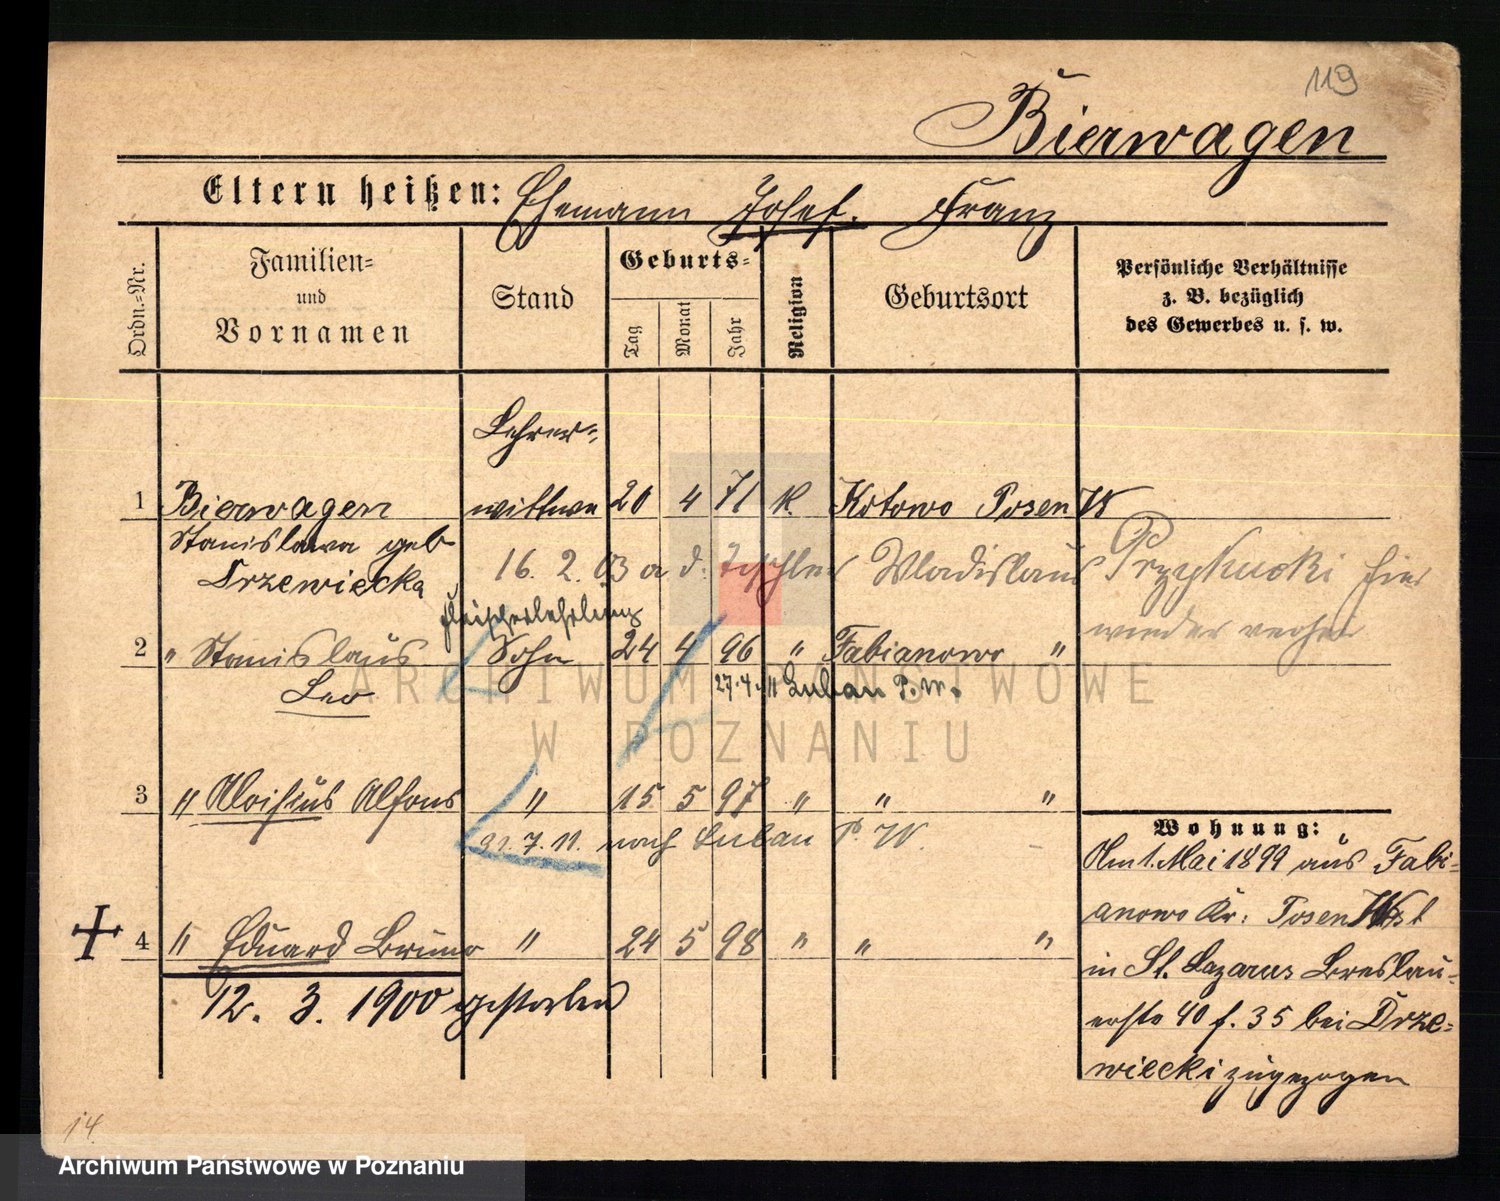 119
Bierwagen
Eltern heißen: Ehemann Josef. Franz
Ordn.-Nr.
Familien-
und
Vornamen
Stand
Geburts-
Tag
Monat
Jahr
Religion
Geburtsort
Persönliche Verhältnisse
z. B. bezüglich
des Gewerbes u. s. w.
Lehrer-
1 Bierwagen wittwe 20 4 71 k. Kotowo Posen W
Stanislawa geb
Drzewiecka
16. 2. 03 a d. Tischler Wladislaus Przybucki hier
wieder verh
Fleischerlehrling
2 " Stanislaus Sohn 24 4 96 " Fabianowo "
Leo
27.4.11 Luban P.W.
3 " Aloisius Alfons " 15 5 97 " " "
21.7.11. nach Luban P. W.
4 " Eduard Bruno " 24 5 98 " " "
12. 3. 1900 gestorben
Wohnung:
Am 1. Mai 1899 aus Fabi-
anowo Kr: Posen West
in St. Lazarus Breslau-
erstr 40 f. 35 bei Drze-
wiecki zugezogen
14.
ARCHIWUM PAŃSTWOWE
W POZNANIU
Archiwum Państwowe w Poznaniu